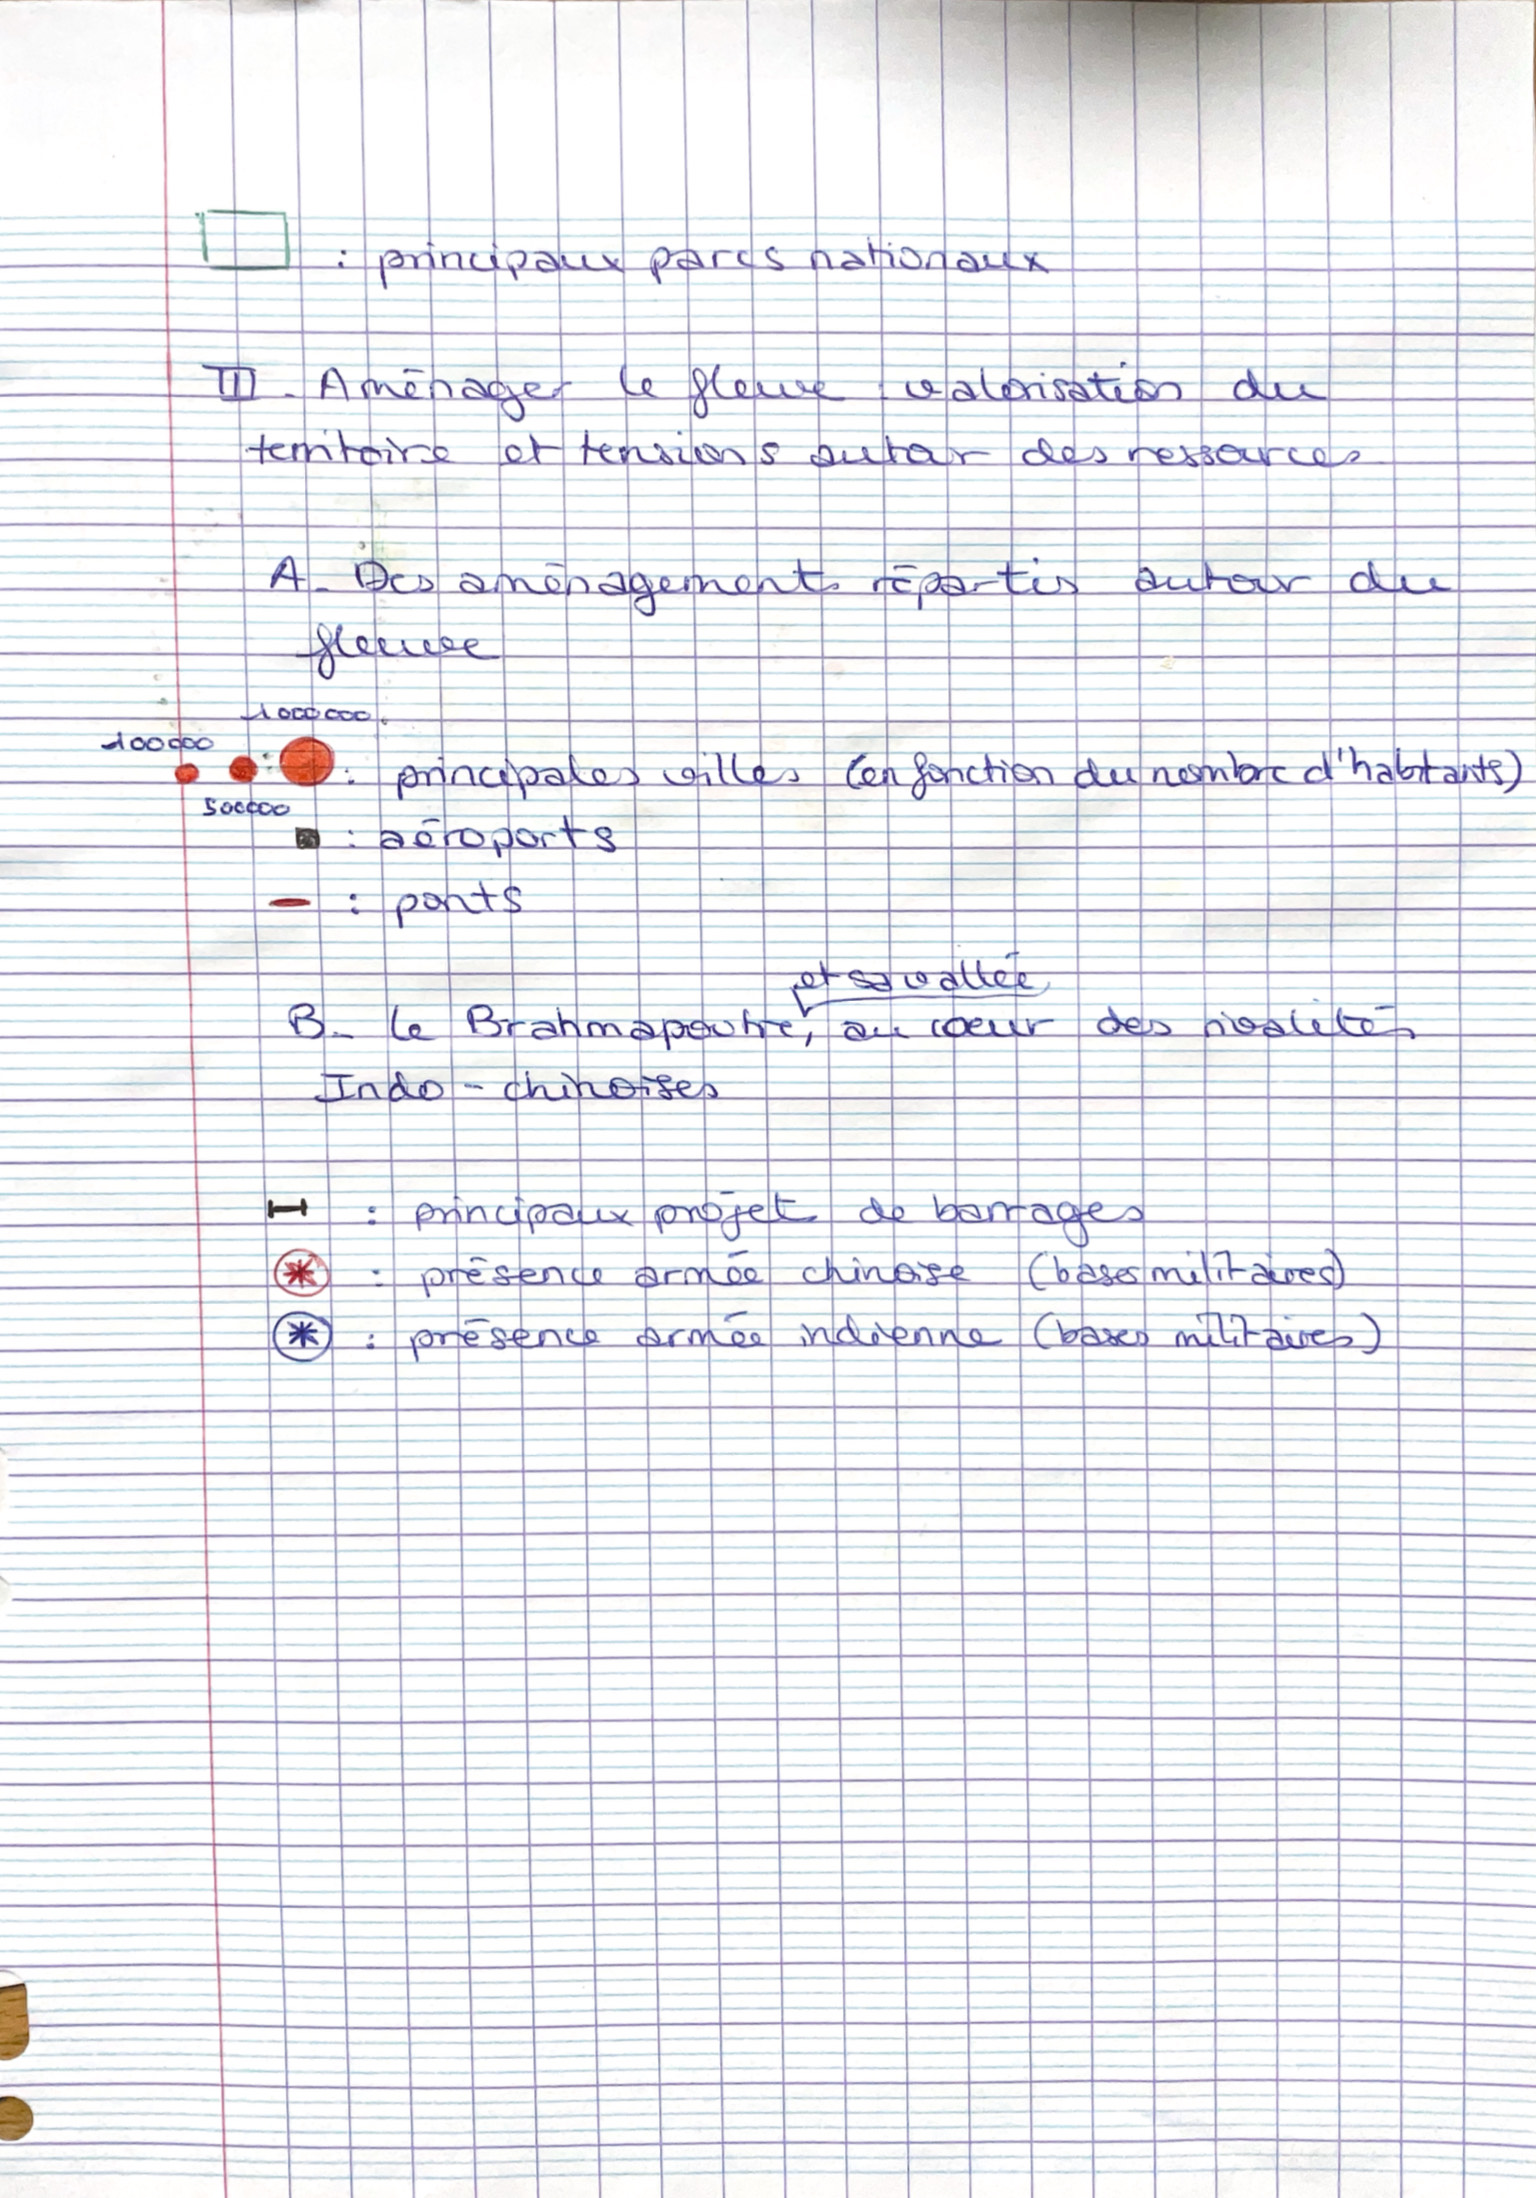 : principaux parcs nationaux
III. Aménager le fleuve : valorisation du
territoire et tensions autour des ressources
A. Des aménagements répartis autour du
fleuve
1000000
100000
: principales villes (en fonction du nombre d'habitants)
500000
: aéroports
: ponts
et sa vallée
B. Le Brahmapoutre, au coeur des rivalités
Indo-chinoises
: principaux projets de barrages
: présence armée chinoise (bases militaires)
: présence armée indienne (bases militaires)